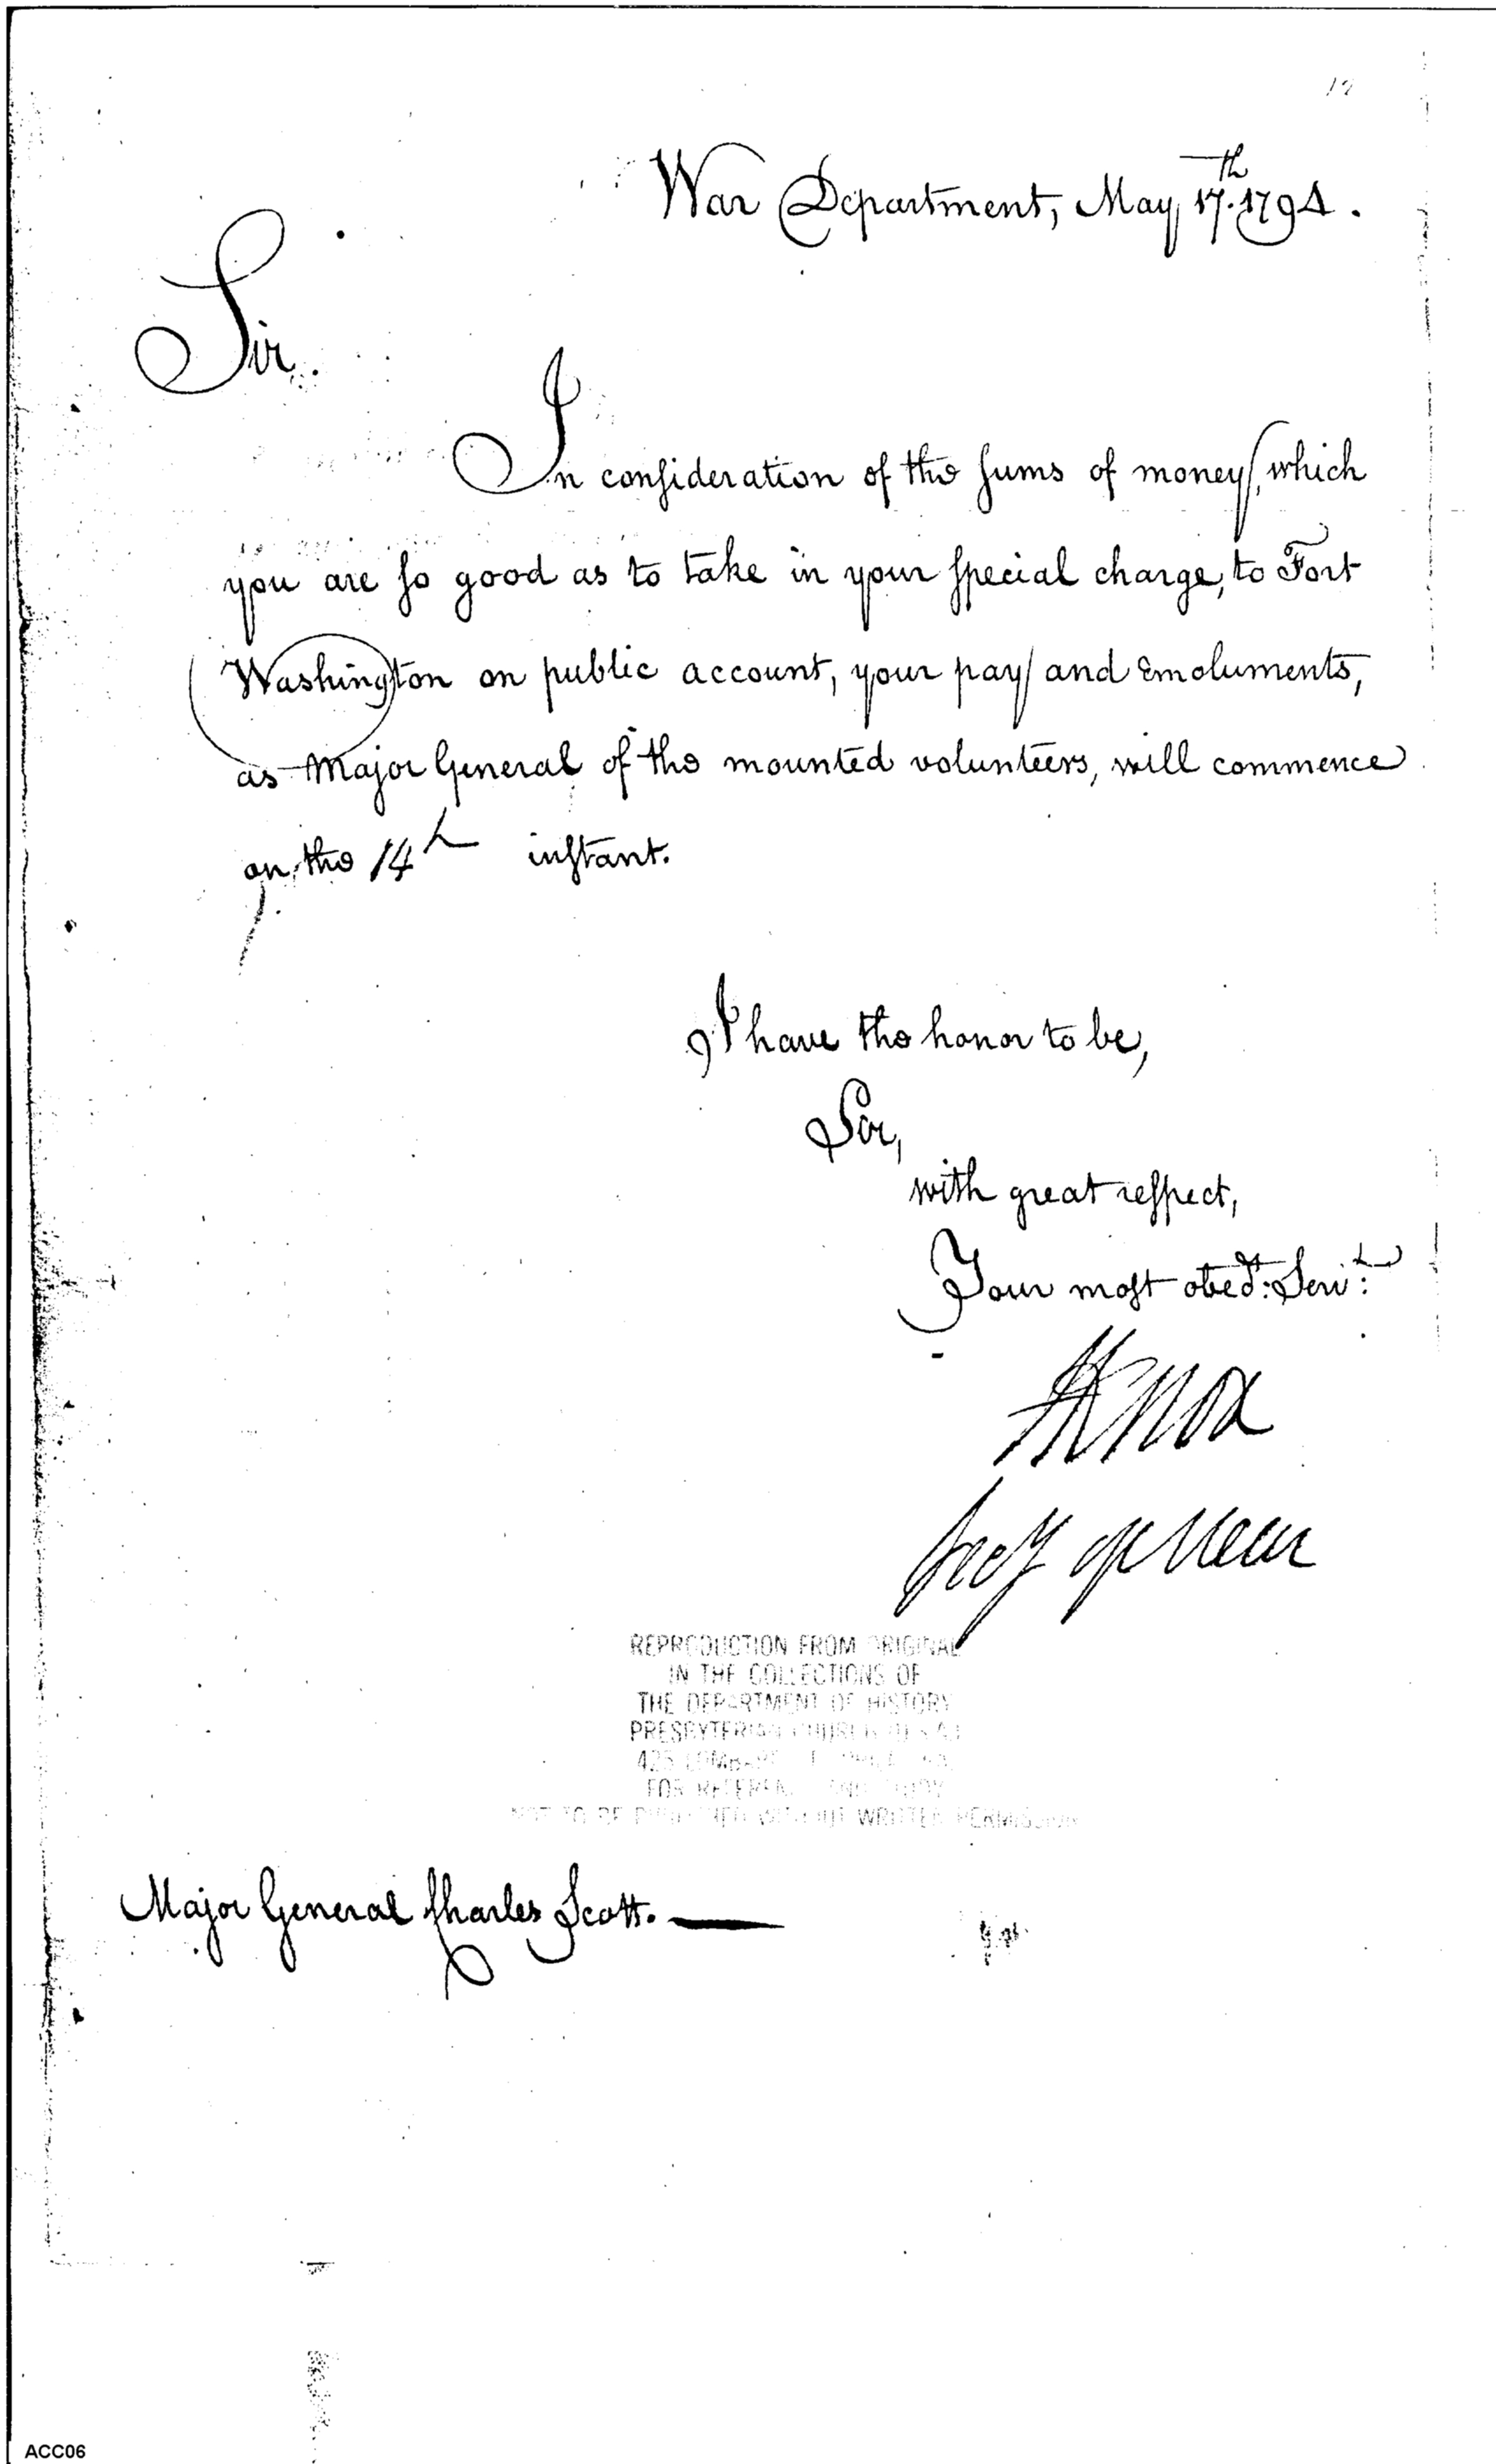 War Department, May 17th. 1794.
Sir.
In consideration of the sums of money, which
you are so good as to take in your special charge, to Fort
Washington on public account, your pay and emoluments,
as Major General of the mounted volunteers, will commence
on the 14h instant.
I have the honor to be,
Sir,
with great respect,
Your most obedt: Servt:
HKnox
Secy of War
REPRODUCTION FROM ORIGINAL
IN THE COLLECTIONS OF
THE DEPARTMENT OF HISTORY
PRESBYTERIAN CHURCH
425 LOMBARD
FOR REFERENCE AND STUDY
NOT TO BE PUBLISHED WITHOUT WRITTEN PERMISSION
Major General Charles Scott.
ACC06